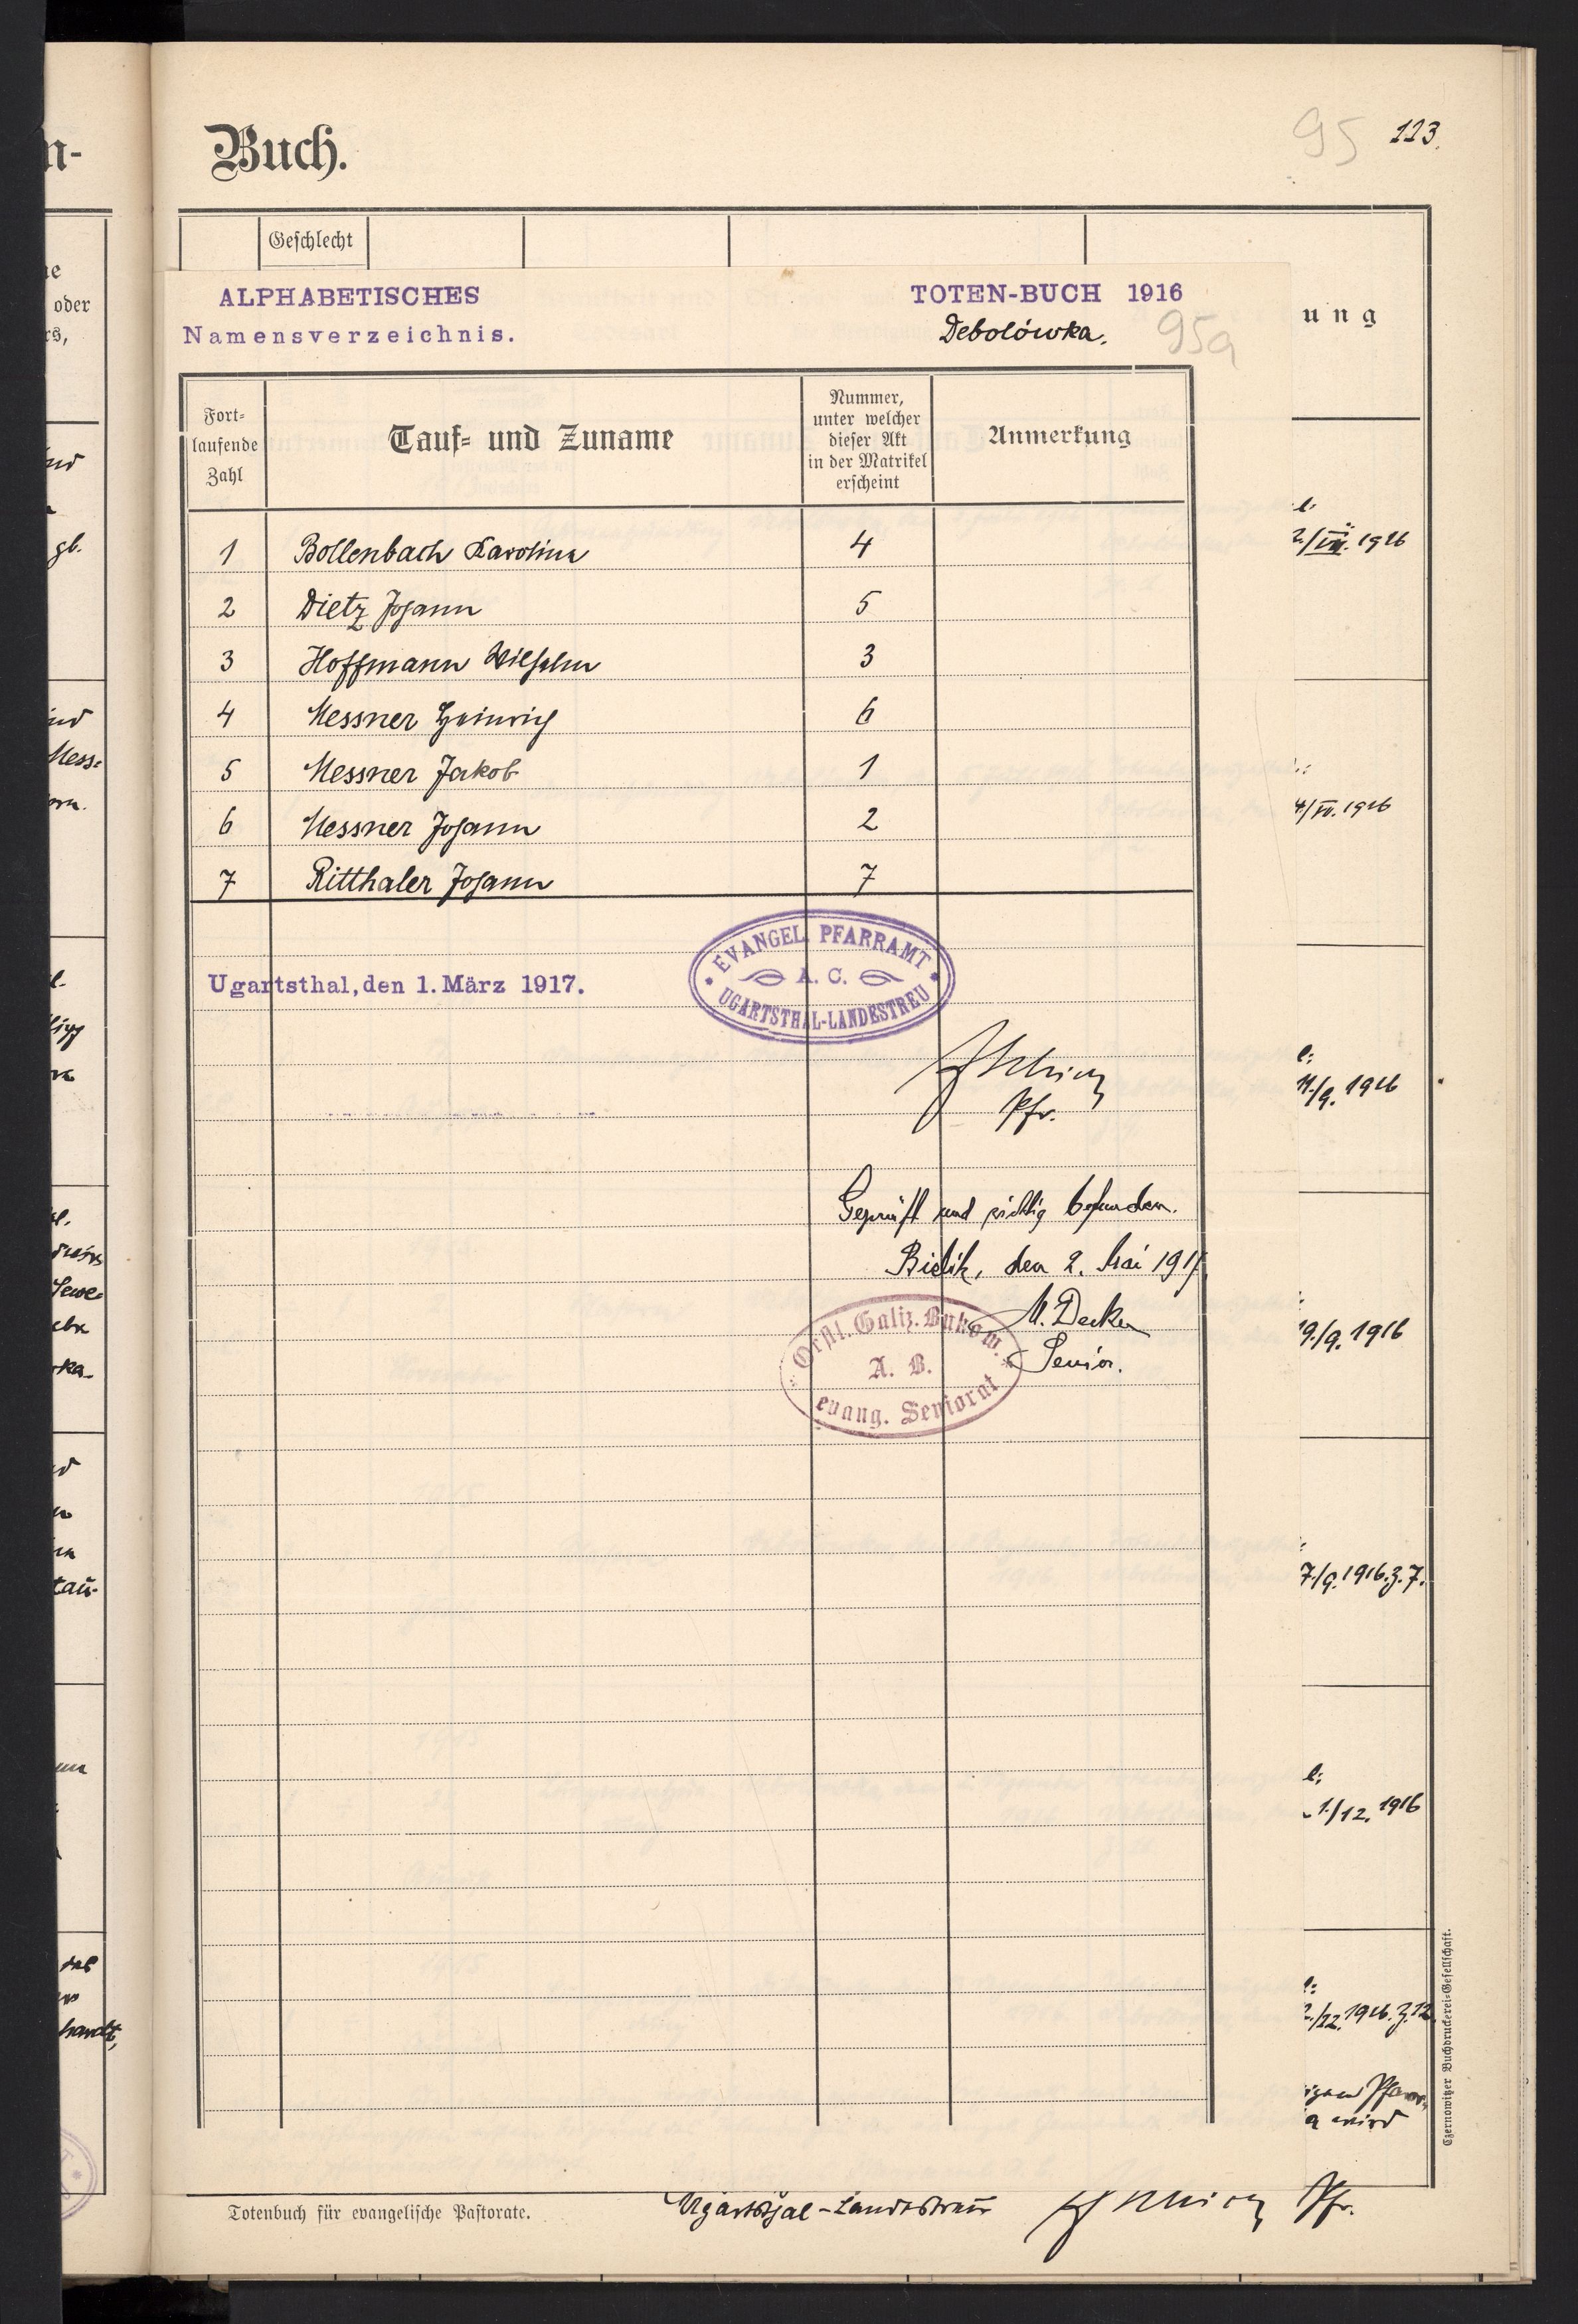 Buch.
95 123.
Geschlecht
ALPHABETISCHES TOTEN-BUCH 1916
Namensverzeichnis. Debolówka. 95a
ung
Fort-
laufende
Zahl
Tauf- und Zuname
Nummer,
unter welcher
dieser Akt
in der Matrikel
erscheint
Anmerkung
1 Bollenbach Karolina 4
2 Dietz Johann 5
3 Hoffmann Wilhelm 3
4 Messner Heinrich 6
5 Messner Jakob 1
6 Messner Johann 2
7 Ritthaler Johann 7
EVANGEL. PFARRAMT
A. C.
UGARTSTHAL-LANDESTREU
Ugartsthal, den 1. März 1917.
Pfr.
Geprüft und richtig befunden.
Bielitz, den 2. Mai 1917.
Senior.
Galiz. Bukow.
A. B.
evang. Seniorat
2/VIII. 1916
4/VII. 1916
11./9. 1916
19./9. 1916
7./9. 1916. Z. 7.
1./12. 1916
2./12. 1916. Z. 12
a wird
Totenbuch für evangelische Pastorate.
Ugartsthal-Landestreu Pfr.
Czernowitzer Buchdruckerei-Gesellschaft.
n-
oder
rs,
gb.
Mess-